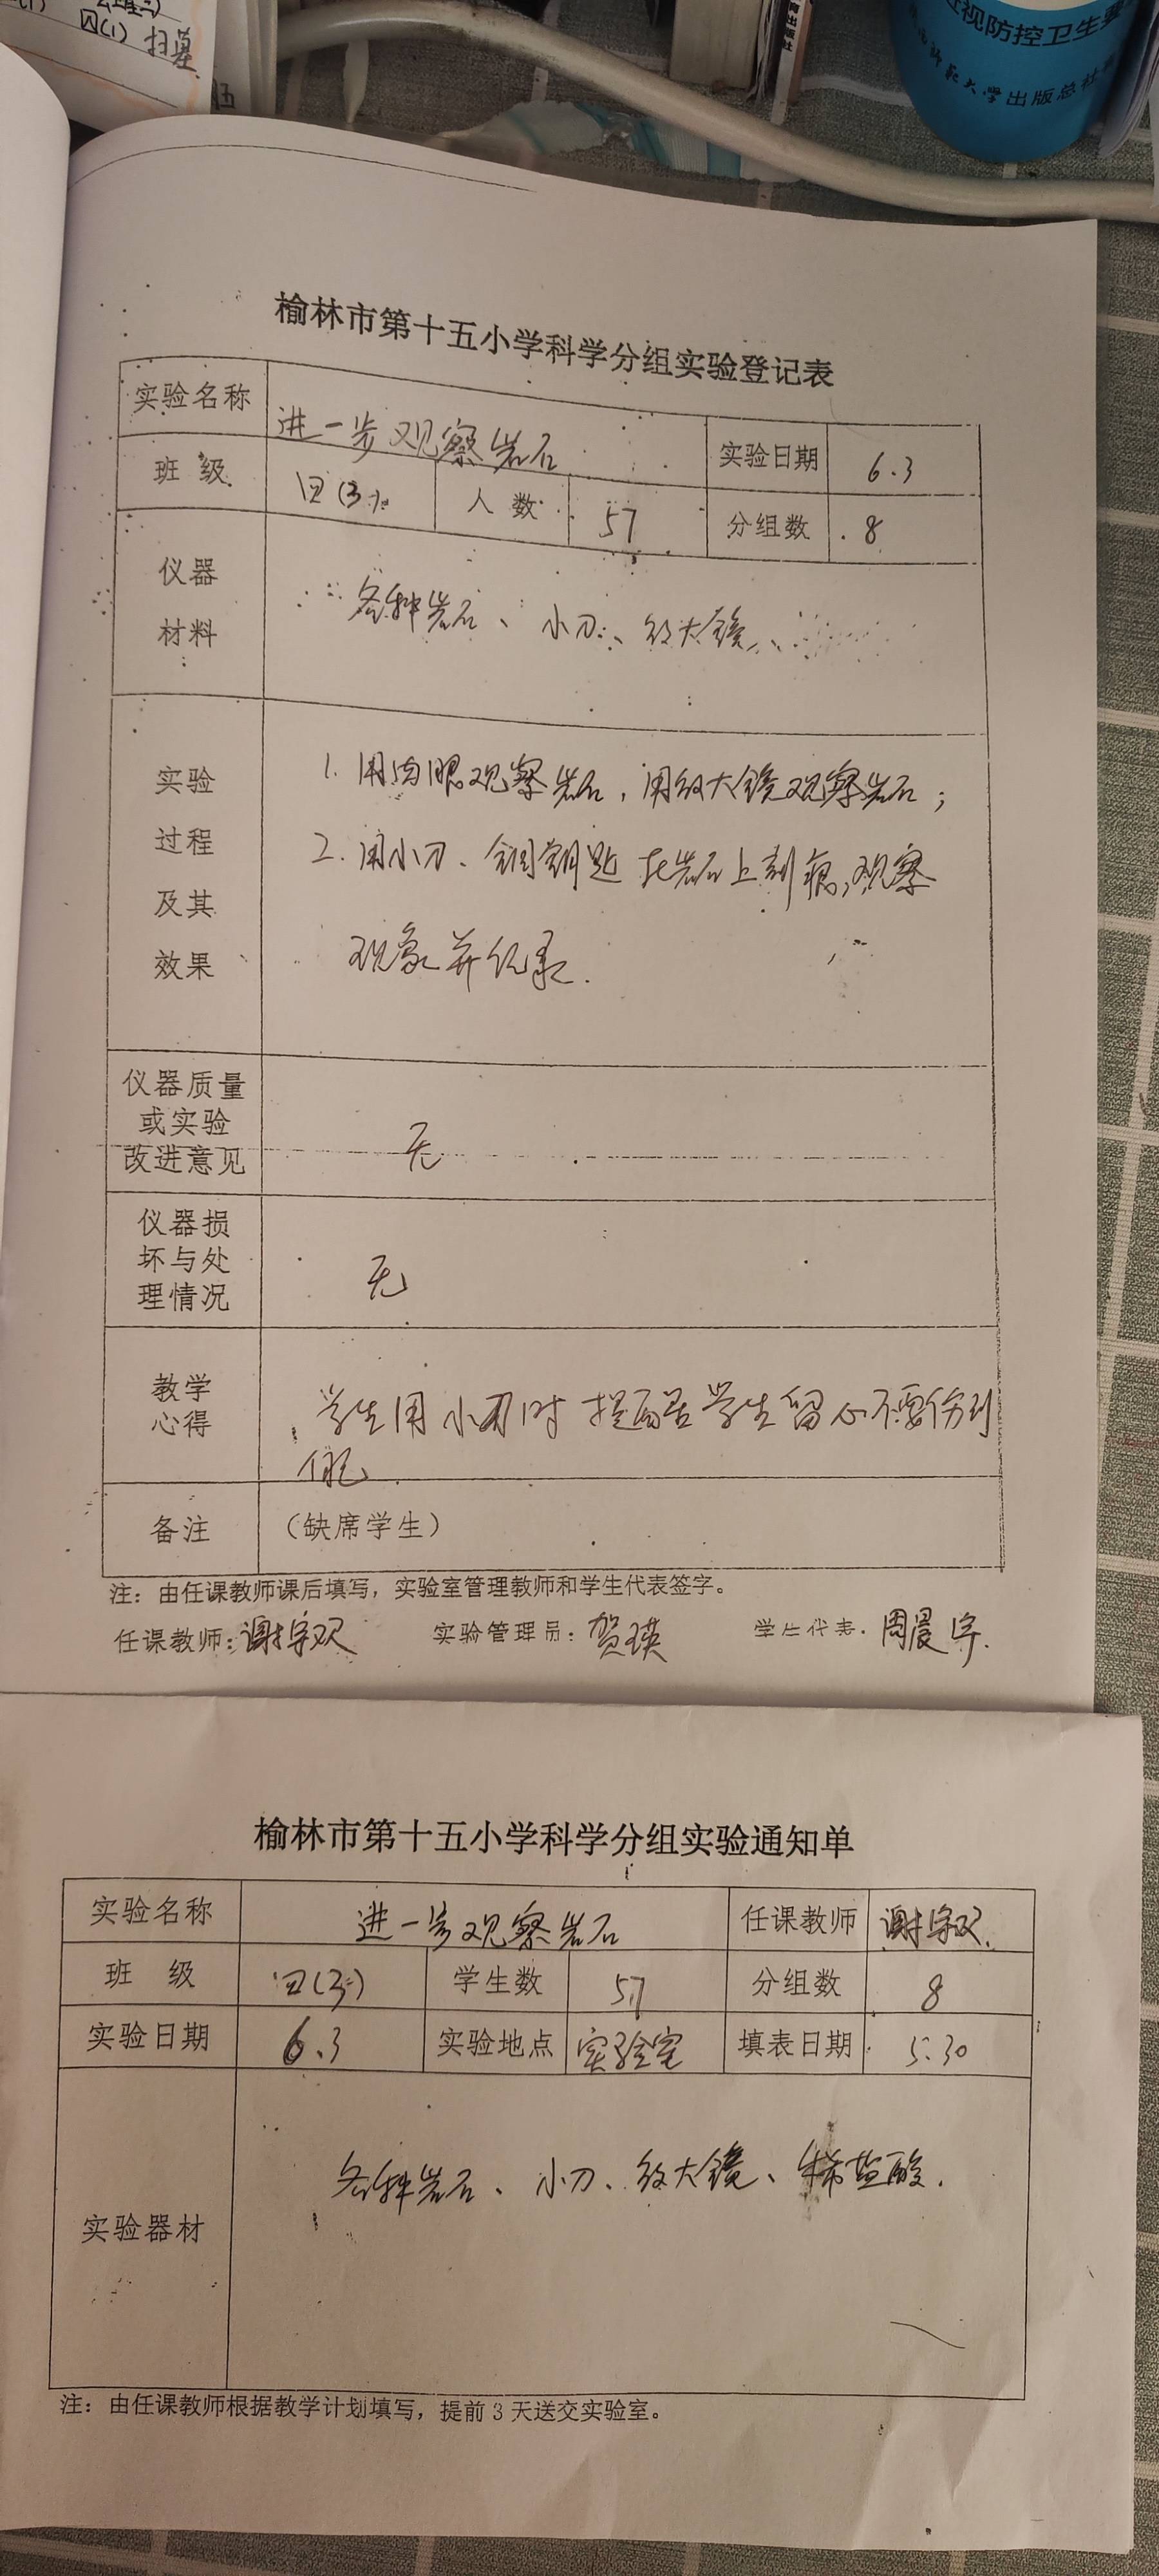 扫墓
视防控卫生
大学出版总社
榆林市第十五小学科学分组实验登记表
实验名称 进一步观察岩石 实验日期 6.3
班 级 四(3) 人 数 57 分组数 8
仪器
材料
各种岩石、小刀、放大镜、
实验
过程
及其
效果
1. 用肉眼观察岩石，用放大镜观察岩石；
2. 用小刀、铜钥匙在岩石上刻痕，观察
现象并纪录.
仪器质量
或实验
改进意见
无
仪器损
坏与处
理情况
无
教学
心得
学生用小刀时提醒学生留心不要伤到
备注 （缺席学生）
注：由任课教师课后填写，实验室管理教师和学生代表签字。
任课教师：谢字双 实验管理员：贺瑛 学生代表：周晨宇.
榆林市第十五小学科学分组实验通知单
实验名称 进一步观察岩石 任课教师 谢字双.
班 级 四(3) 学生数 57 分组数 8
实验日期 6.3 实验地点 实验室 填表日期 5.30
实验器材
各种岩石、小刀、放大镜、稀盐酸.
注：由任课教师根据教学计划填写，提前 3 天送交实验室。